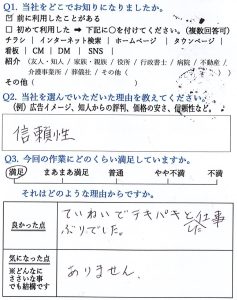 Q1. 当社をどこでお知りになりましたか。
☑ 前に利用したことがある
□ 初めて利用した ➡ 下記に○を付けてください。（複数回答可）
チラシ | インターネット検索 | ホームページ | タウンページ
看板 | CM | DM | SNS |
紹介 （友人・知人 / 家族・親族 / 役所 / 行政書士 / 病院 / 不動産 /
介護事業所 / 葬儀社 / その他（
その他（
Q2. 当社を選んでいただいた理由を教えてください。
（例）広告イメージ、知人からの評判、価格の安さ、信頼性など。
信頼性
Q3. 今回の作業にどのくらい満足していますか。
満足 まあまあ満足 普通 やや不満 不満
それはどのような理由からですか。
良かった点
ていねいでテキパキと仕事
ぶりでした。
気になった点
※どんなに
ささいな事
でも結構です
ありません。